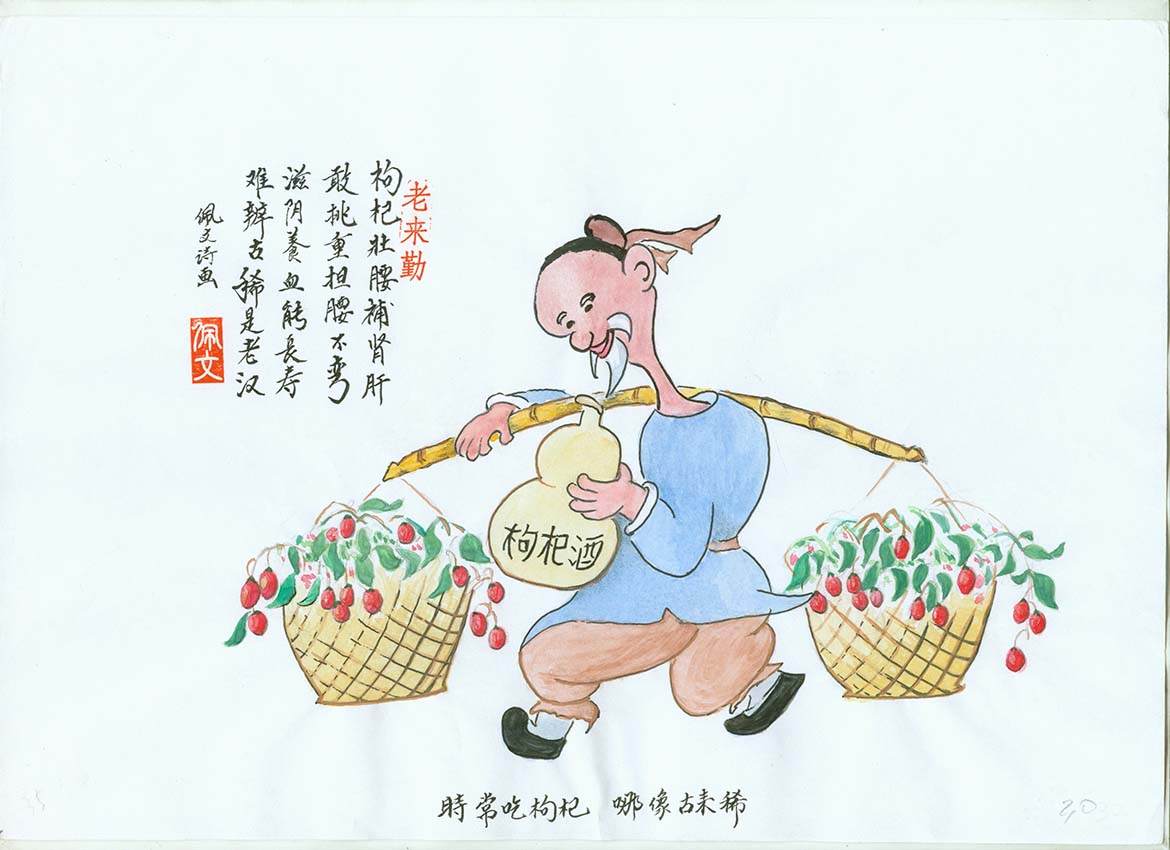 老来勤
枸杞壮腰補肾肝
敢挑重担腰不弯
滋阴養血能長寿
难辨古稀是老汉
佩文诗画
佩文
枸杞酒
時常吃枸杞 哪像古来稀